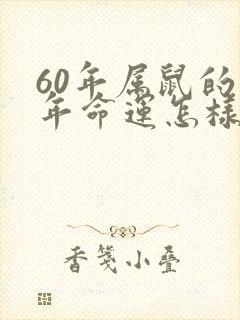 60年属鼠的
年命运怎样
香笺小叠